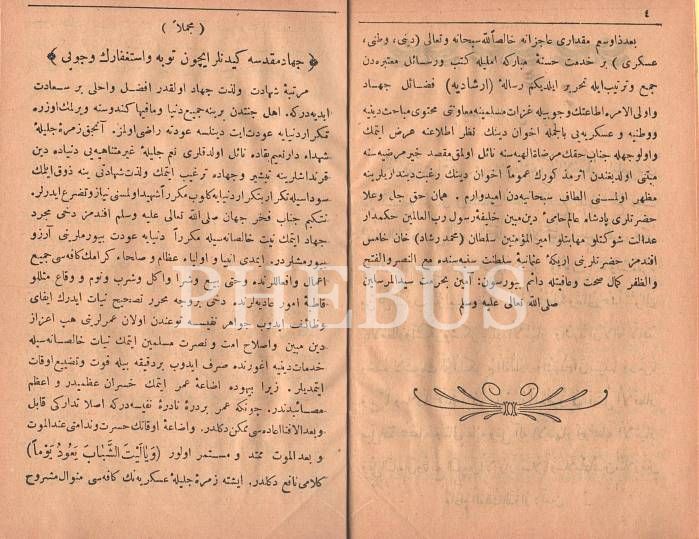 ٤
بعد ذا وسع مقداری عاجزانه خالصاً لله سبحانه وتعالی (دینی، وطنی،
عسکری) بر خدمت حسنهٔ مبارکه املیله کتب ورسائل معتبره‌دن
جمع وترتیب ایله تحریر ایلدیکم رسالهٔ (ارشادیه) فضائل جهاد
واولی الامره اطاعتك وجوبیله غزات مسلمینه معاونتی محتوی مباحث دینیه
ووطنیه و عسکریه‌یی بالجمله اخوان دینك نظر اطلاعنه عرض ایتمك
واولوجهله جناب حقك مرضاة الهیه‌سنه نائل اولمق مقصد خیر مرضیه‌سنه
مبتنی اولدیغندن اثرمذکورك عموماً اخوان دینك رغبت دیندارلرینه
مظهر اولمسنی الطاف سبحانیه‌دن امیدوارم. همان حق جل وعلا
حضرتلری پادشاه عالم حامیٔ دین مبین خلیفهٔ رسول رب العالمین حکمدار
عدالت شوکتلو مهابتلو امیر المؤمنین سلطان (محمد رشاد) خان خامس
افندمز حضرتلرینی اریکهٔ عثمانیهٔ سلطنت سنیه‌سنده مع النصر والفتح
والظفر کمال صحت وعافیتله دائم بیورسون: آمین بحرمت سید المرسلین
صلی الله تعالی علیه وسلم
(مجملاً)
﴿ جهاد مقدسه کیدنلر ایچون توبه واستغفارك وجوبی ﴾
مرتبهٔ شهادت ولذت جهاد اولقدر افضل واحلی بر سعادت
ابدیه‌درکه. اهل جنتدن برینه جمیع دنیا ومافیها کندوسنه ویرلمك اوزره
تکرار دنیایه عودت ایت دینلسه عودته راضی اولماز. آنجق زمرهٔ جلیلهٔ
شهداء دارنعیم بقاده نائل اولدقلری نعم جلیلهٔ غیر متناهیه‌یی دنیاده دین
قرنداشلرینه تبشیر وجهاده ترغیب ایتمك ولذت شهادتی ینه ذوق ایلمك
سوداسیله تکرار بتکرار دنیایه کلوب مکرراً شهید اولمسنی نیاز وتضرع ایدرلر.
نتکیم جناب فخر جهان صلی الله تعالی علیه وسلم افندمز دخی مجرد
جهاد ایتمك نیت خالصانه‌سیله مکرراً دنیایه عودت بیورملرینی آرزو
بیورمشلردر. ایمدی انبیا و اولیاء عظام و صلحاء کرامك کافه‌سی جمیع
اعمال وافعاللرنده وحتی بیع وشرا واکل وشرب ونوم و وقاع مثللو
قاطبهٔ امور عادیه‌لرنده دخی بروجه محرر تصحیح نیات ایدرك ایفای
وظائف ایدوب جواهر نفیسه نوعندن اولان عمرلرینی هب اعزاز
دین مبین واصلاح امت و نصرت مسلمین ایتمك نیات خالصانه‌سیله
خدمات دینیه اغورنده صرف ایدوب بردقیقه بیله فوت وتضییع اوقات
ایتمدیلر. زیرا بیهوده اضاعهٔ عمر ایتمك خسران عظیمدر و اعظم
مصائبدندر. چونکه عمر بردرهٔ نادرهٔ نفیسه‌درکه اصلا تدارکی قابل
وبعد الافنا اعاده‌سی ممکن دکلدر. واضاعهٔ اوقاتك حسرت وندامتی عند الموت
و بعد الموت ممتد و مستمر اولور (وَیَا لَیْتَ الشَّبَابَ یَعُودُ یَوْماً)
کلامی نافع دکلدر. ایشته زمرهٔ جلیلهٔ عسکریه‌نك کافه‌سی منوال مشروح
PHEBUS